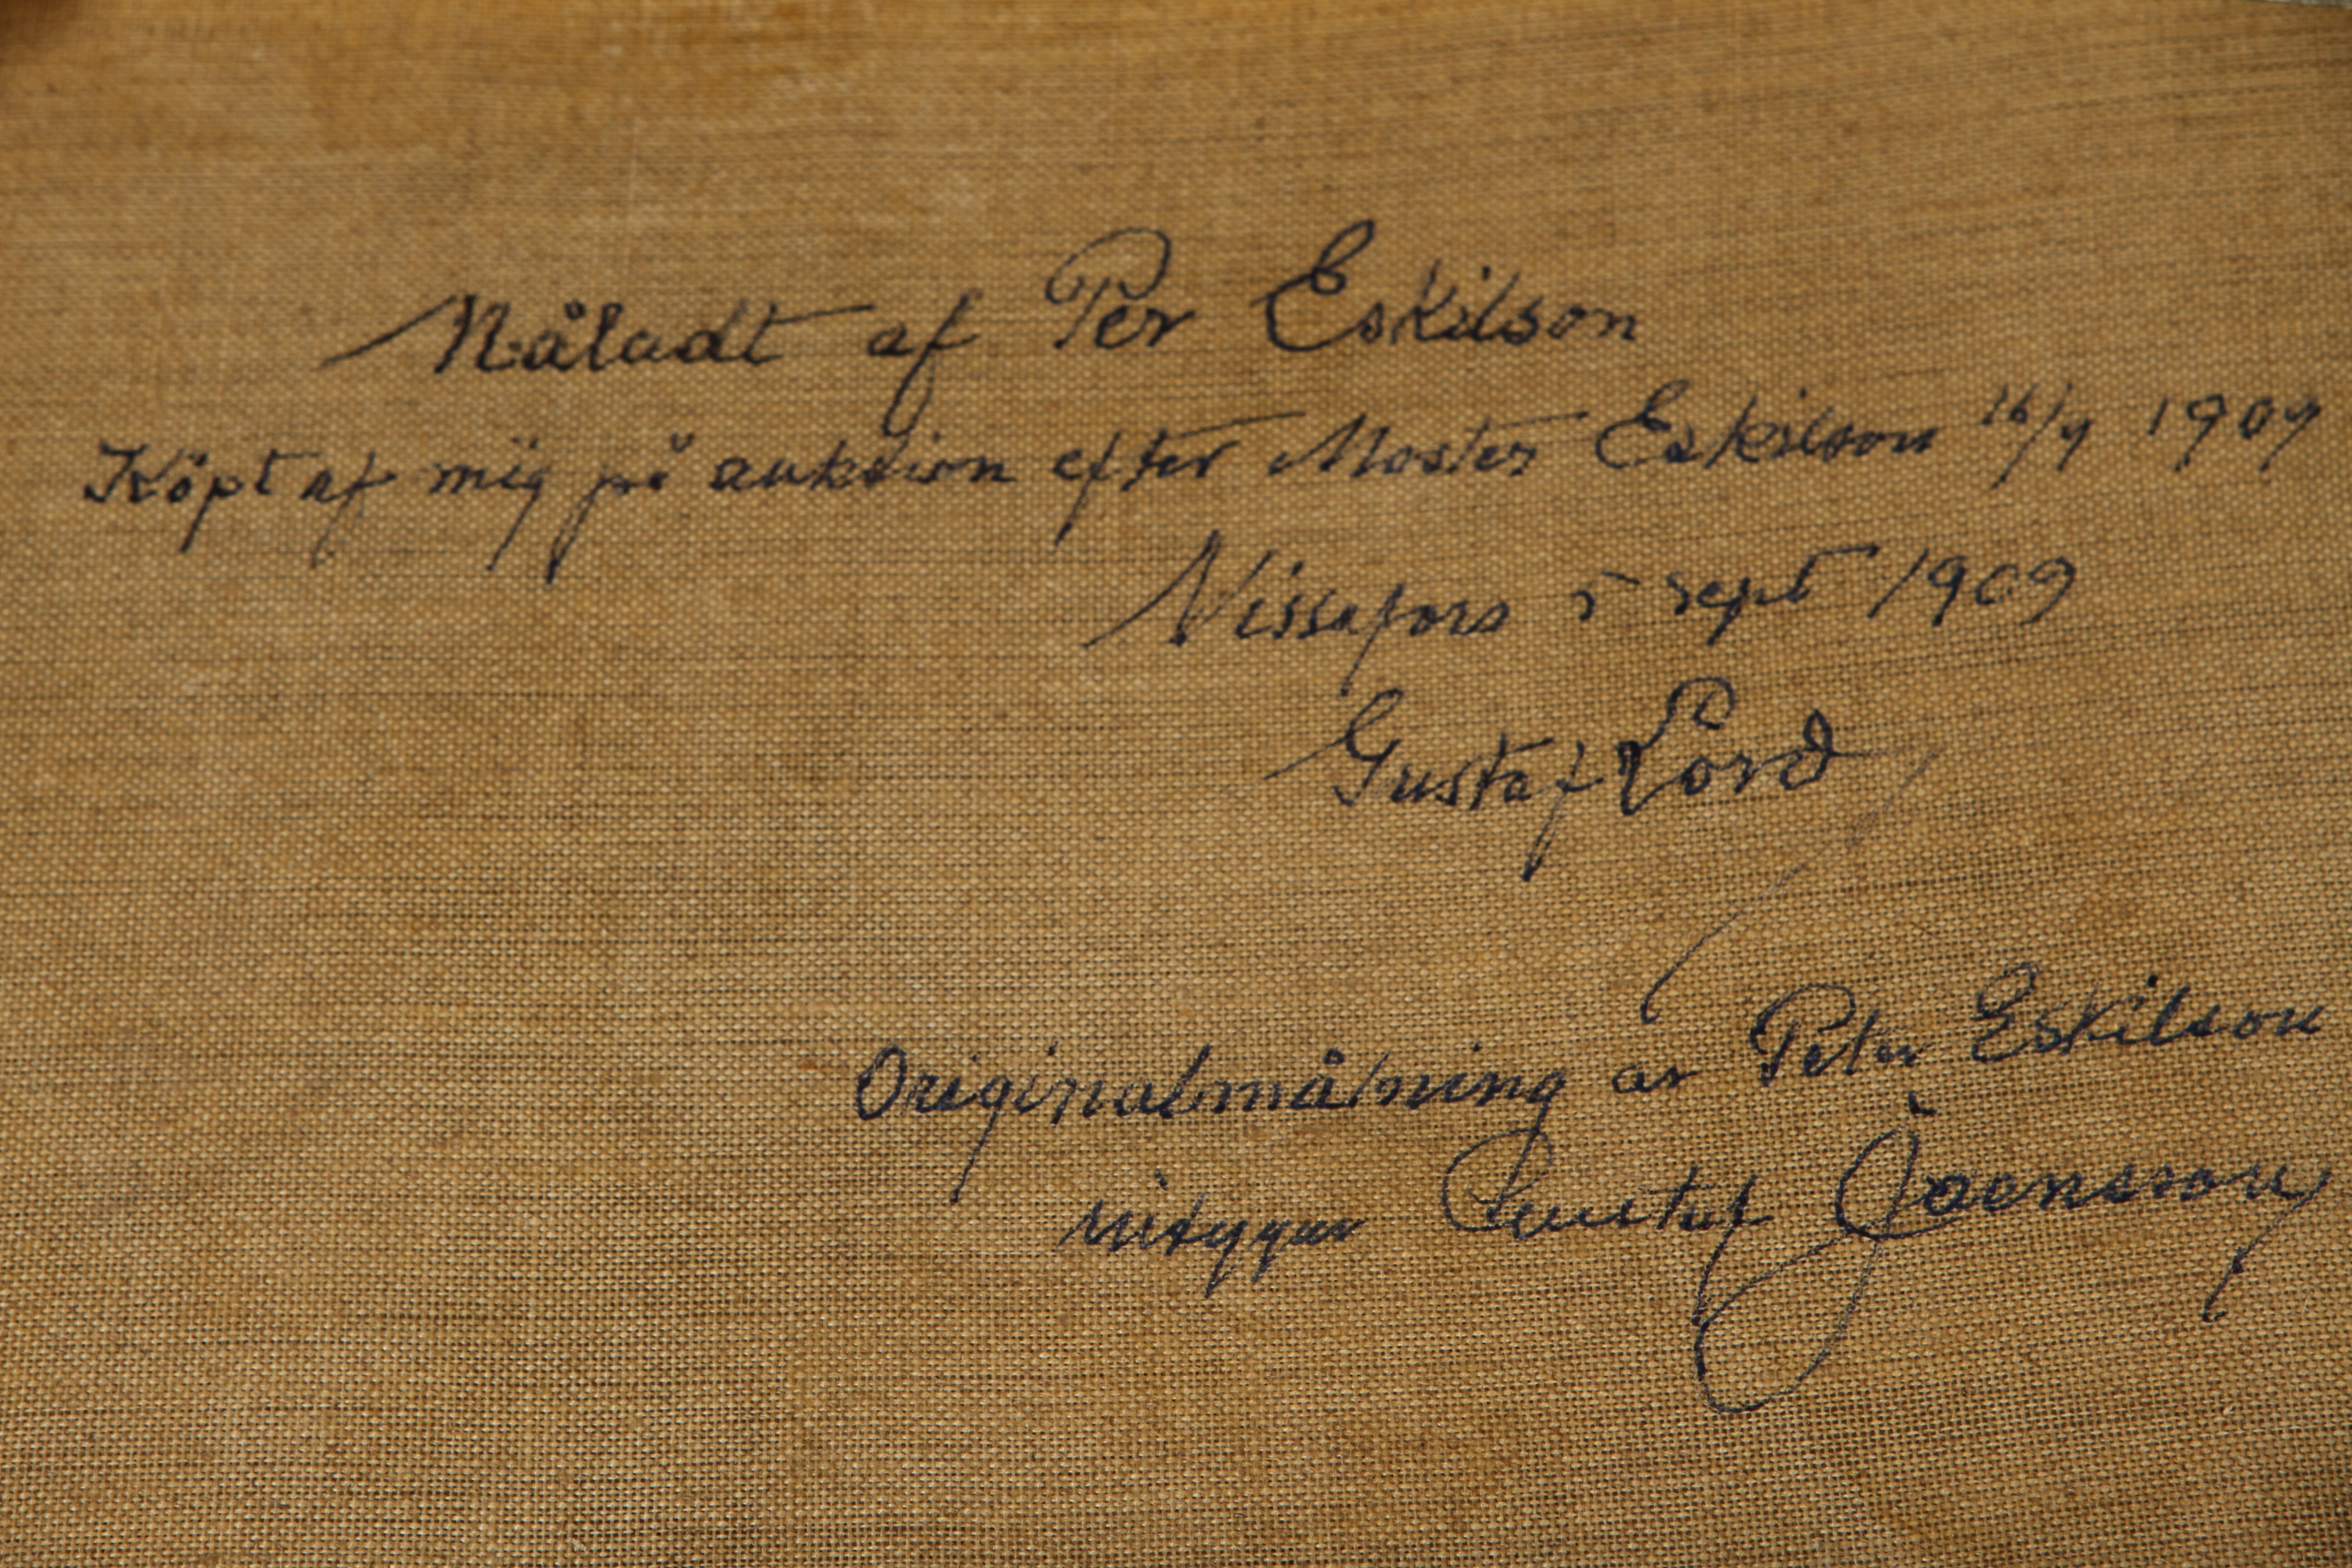 Måladt af Per Eskilson
Köpt af mig på auktion efter Moster Eskilson 16/7 1909
Nissafors 5 sept 1909
Gustaf Lord
Originalmålning av Peter Eskilson
intygar Gustaf Joensson